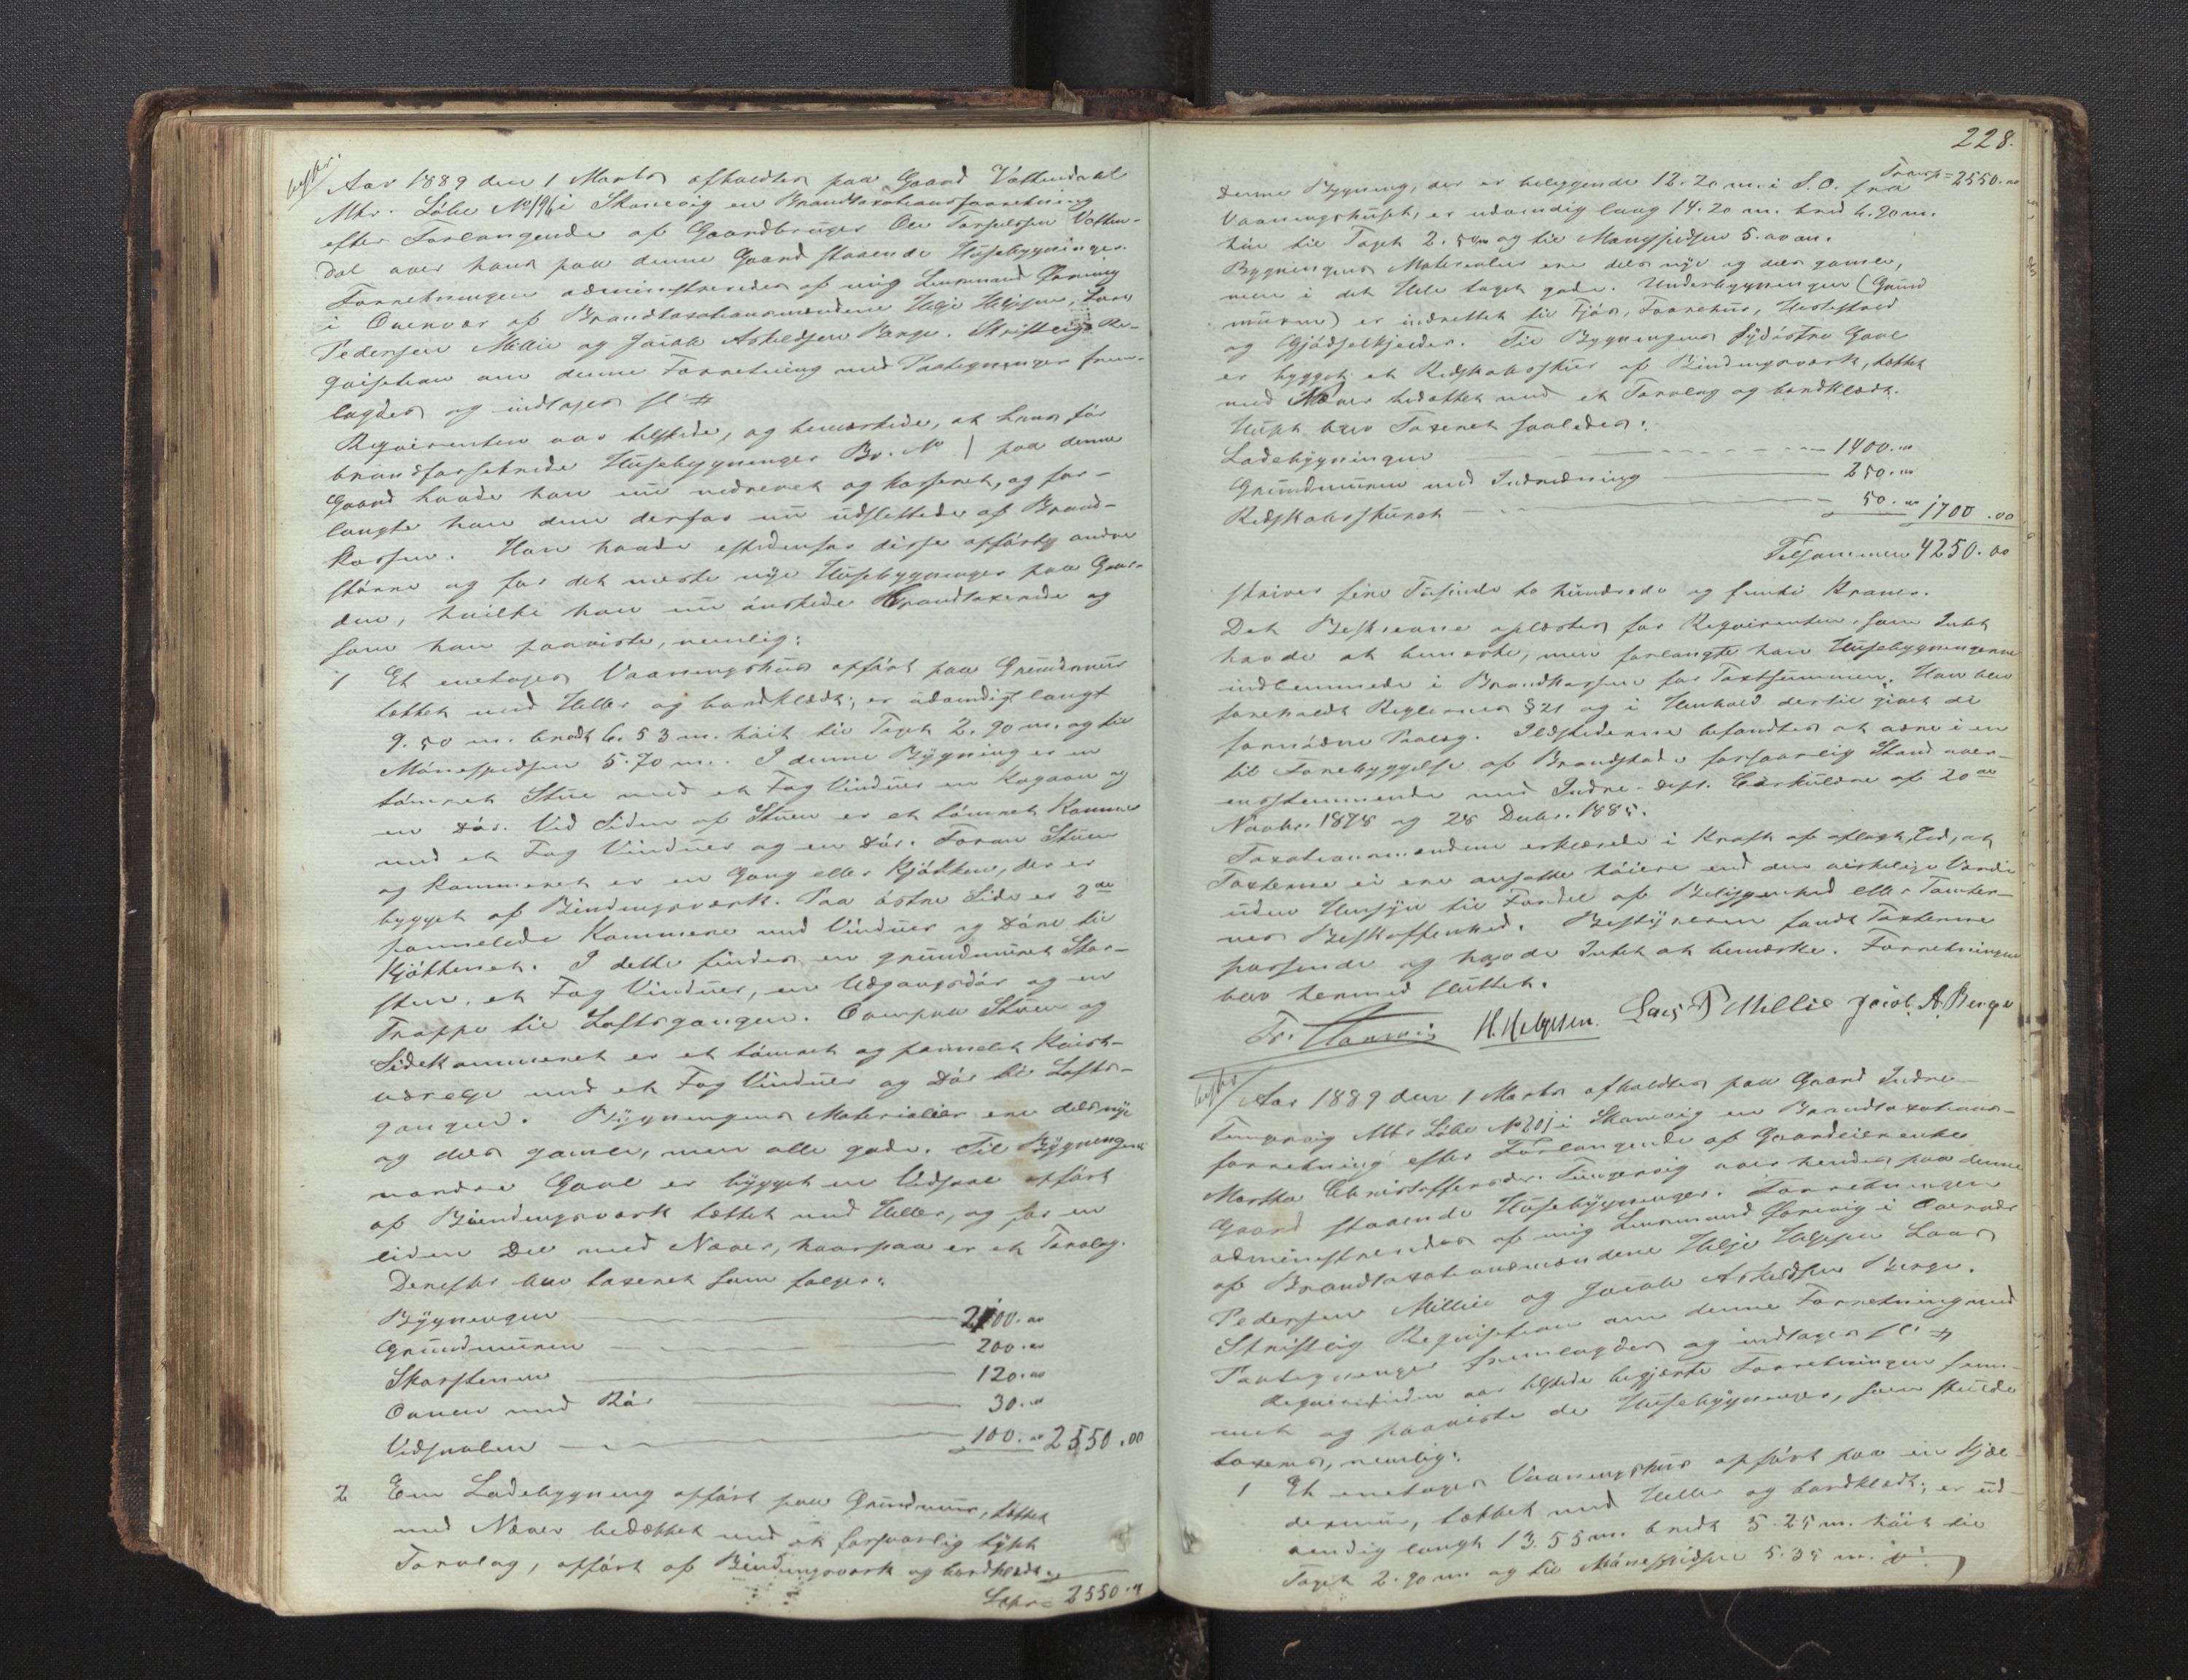 Aar 1889 den 1 Marts afholdtes paa Gaard Vattendal
Mtr. Løbe No 196 i Skonevig en Brandtaxationsforretning
efter Forlangende af Gaardbruger Ole Torjeldsen Vatten-
dal over hans paa denne Gaard staaende Husebygninger.
Forretningen administreredes af mig Lensmand
i Overvær af Brandtaxationsmændene Helje Heljesen, Lars
Pedersen Millie og Jacob Askildsen Berge. Skriftlig Re-
quisition om denne Forretning med Paategninger frem-
lagdes og indtages sl #
Requirenten var tilstede, og bemærkede, at hans før
brandforsikrede Husebygninger Br. No 1 paa denne
Gaard havde han nu nedrevet og kasseret, og for-
langte han dem derfor nu udslettede af Brand-
kassen. Han havde istedenfor disse opført andre
større og for det meste nye Husebygninger paa Gaar-
den, hvilke han nu ønskede Brandtaxerede og
som han paaviste, nemlig:
1 Et enetages Vaaningshus opført paa Grundmur
tættet med Heller og bordklædt; er udvendigt langt
9.50 m. bredt 6.53 m. høit til Taget 2.90 m. og til
Mønespidsen 5.70 m. I denne Bygning er en
tømret Stue med et Fag Vinduer en Kogeovn og
en Dør. Ved Siden af Stuen er et tømret Kammer
med et Fag Vinduer og en Dør. Foran Stuen
og Kammeret er en Gang eller Kjøkken, der er
bygget af Bindingsværk. Paa østre Side er 2de
pannelede Kammere med Vinduer og Døre til
Kjøkkenet. I dette findes en grundmuret Skor-
sten, et Fag Vinduer, en Udgangsdør og en
Trappe til Loftsgangen. Ovenpaa Stuen og
Sidekammeret er et tømret og pannelet Kvist-
værelse med et Fag Vinduer og Dør til Lofts-
gangen. Bygningens Materialier ere dels nye
og dels gamle, men alle gode. Til Bygningens
nordre Gavl er bygget en Vedsval opført
af Bindingsværk tættet med Heller, og for en
liden Del med Næver, hvorpaa er et Torvlag.
Derefter blev taxeret som følger:
Bygningen 2100.00
Grundmuren 200.00
Skorstenen 120.00
Ovnen med Rør 30.00
Vedsvalen 100.00 2550.00
2 En Ladebygning opført paa Grundmur, tættet
med Næver bedækket med et forsvarlig tykt
Torvlag, opført af Bindingsværk og bordklædt.
2550.00
228.
Transp= 2550.00
Denne Bygning, der er beliggende 12.20 m. i S.O. fra
Vaaningshuset, er udvendig lang 14.20 m. bred 6.90 m.
høi til Taget 2.50 m og til Mønespidsen 5.00 m.
Bygningens Materialier ere dels nye og dels gamle,
men i det Hele taget gode. Underbygningen (Grund
muren) er indrettet til Fjøs, Faarehus, Hestestald
og Gjødselkjelder. Til Bygningens sydøstre Gavl
er bygget et Redskabsskur af Bindingsværk, tættet
med Næver bedækket med et Torvlag og bordklædt.
Huset blev Taxeret saaledes:
Ladebygningen 1400.00
Grundmuren med Indredning 250.00
Redskabsskuret 50.00 1700.00
Tilsammen 4250.00
skriver fire Tusinde to hundrede og femti Kroner.
Det Beskrevne oplæstes for Requirenten, som Intet
havde at bemærke, men forlangte han Husebygningerne
indlemmede i Brandkassen for Taxtsummen. Han blev
foreholdt Reglernes § 21 og i Henhold dertil givet de
fornødne Paalæg. Ildstederne befandtes at være i en
til Forebyggelse af Brandskade forsvarlig Stand over-
ensstemmende med Indre-Dept. Cirkulære af 20de
Novbr. 1878 og 28 Decbr. 1885.
Taxationsmændene erklærede i Kraft af aflagt Ed, at
Taxterne ei ere ansatte høiere end den virkelige Værdi
uden Hensyn til Fordel af Beliggenhed eller Tomter-
nes Beskaffenhed. Bestyreren fandt Taxterne
passende og havde Intet at bemærke. Forretningen
blev hermed sluttet.
H. Helgesen. Lars P Millie Jacob A. Berge
Aar 1889 den 1 Marts afholdtes paa Gaard Indre-
Tungesvig Mtr. Løbe No 201 i Skonevig en Brandtaxations-
forretning efter Forlangende af Gaardeierenke
Martha Christoffersdtr. Tungesvig over hendes paa denne
Gaard staaende Husebygninger. Forretningen
administreredes af mig Lensmand i Overvær
af Brandtaxationsmændene Helje Heljesen Lars
Pedersen Millie og Jacob Askildsen Berge.
Skriftlig Requisition om denne Forretning med
Paategninger fremlagdes og indtages sl. #
Requirentinden var tilstede begjærte Forretningen frem-
met og paaviste de Husebygninger, som skulde
taxeres, nemlig:
1 Et enetages Vaaningshus opført paa en Kjæl-
dermur, tættet med Heller og bordklædt; er ud-
vendig langt 13.55 m. bredt 5.25 m. høit til
Taget 2.90 m. og til Mønespidsen 5.35 m.